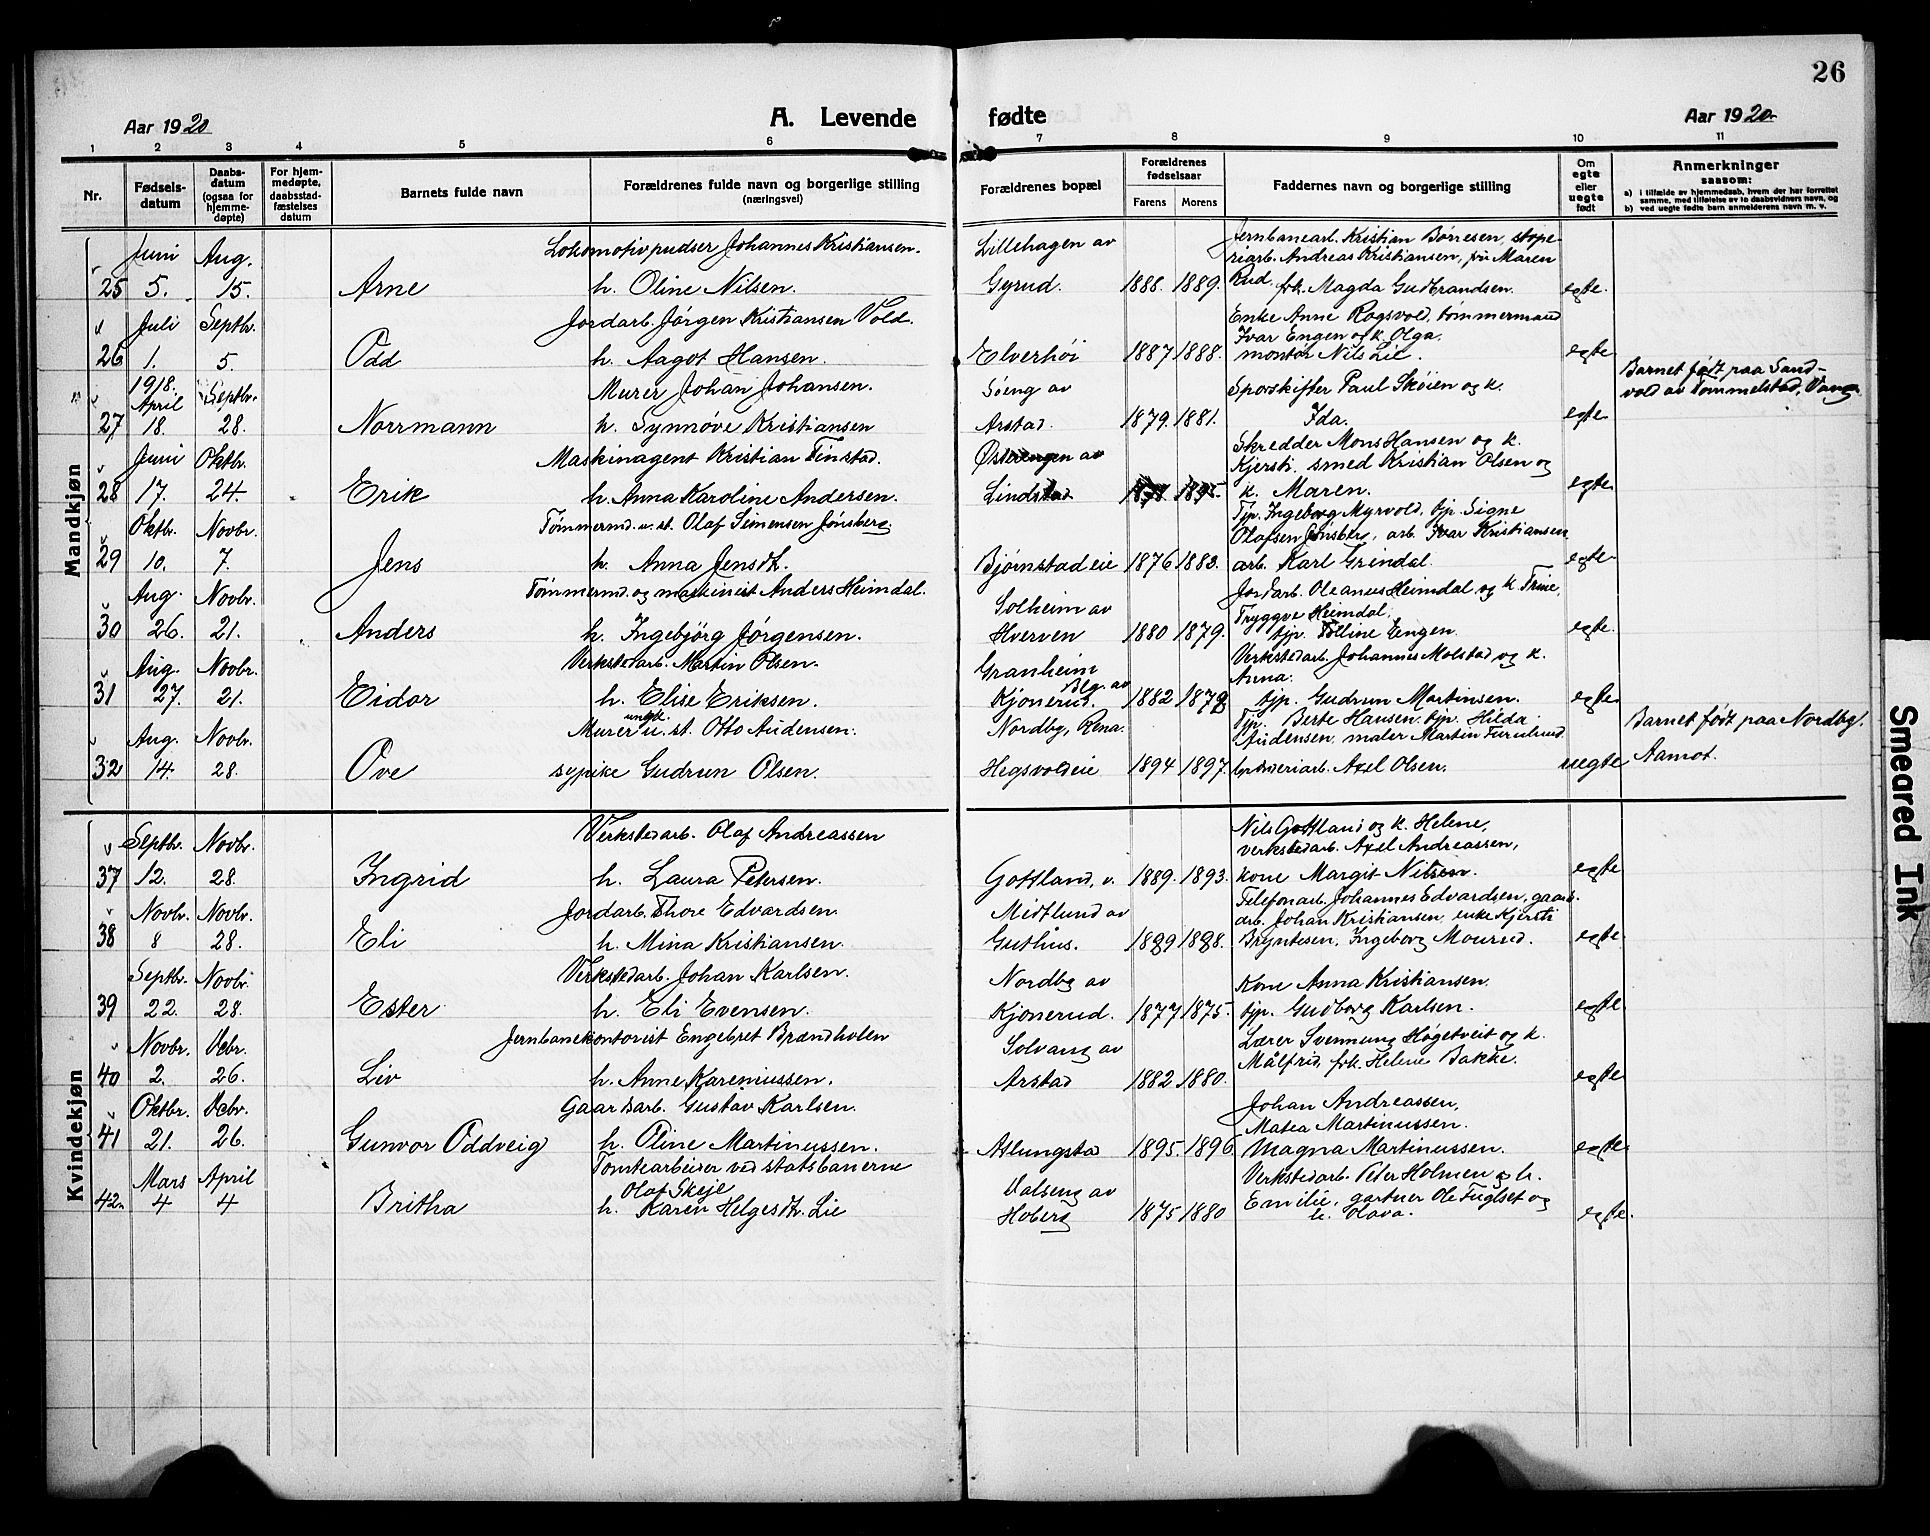 26
Aar 1920
A. Levende fødte
Aar 1920
1 2 3 4 5 6 7 8 9 10 11
Nr.
Fødsels-
datum
Daabs-
datum
(ogsaa for
hjemme-
døpte)
For hjem-
medøpte,
daabsstad-
fæstelses
datum
Barnets fulde navn
Forældrenes fulde navn og borgerlige stilling
(næringsvei)
Forældrenes bopæl
Forældrenes
fødselsaar
Farens Morens
Faddernes navn og borgerlige stilling
Om
egte
eller
uegte
født
Anmerkninger
saasom:
a) i tilfælde av hjemmedaab, hvem der har forrettet
samme, med tilføielse av to daabsvidners navn, og
b) ved uegte fødte barn anmelderens navn m. v.
Mandkjøn
Juni Aug. Lokomotivpudser Johannes Kristiansen. Lillehagen av Jernbanearb. Kristian Børresen, støpe-
riarb. Andreas Kristiansen, fru Maren
25 5. 15. Arne h. Oline Nilsen. Gyrud. 1888. 1889. Rud. frk. Magda Gudbrandsen. egte.
Juli Septbr. Jordarb. Jørgen Kristiansen Vold. Enke Anne Rogsvold, tømmermand
Ivar Engen og k. Olga.
26 1. 5. Odd h. Aagot Hansen. Elverhöi 1887 1888. montör Nils Lie. egte
1918. Septbr. Murer Johan Johansen. Söeng av Sporskifter Paul Sköien og k. Barnet født paa Sand-
April vold av Tommelstad, Vang
27 18. 28. Norrmann h. Synnøve Kristiansen Arstad. 1879. 1881. Ida. egte.
Juni Oktbr. Maskinagent Kristian Finstad. Østerengen av Skredder Mons Hansen og k.
Kjersti, smed Kristian Olsen og
28 17. 24. Erik h. Anna Karoline Andersen. Lindstad 1895. k. Maren. egte.
Oktbr. Novbr. Tømmermd. u. st. Olaf Simensen Jønsberg Tjp. Ingeborg Myrvold, tjp. Signe
Olafsen Jønsberg, arb. Ivar Kristiansen
29 10. 7. Jens h. Anna Jensdt. Bjørnstadeie 1876 1883. arb. Karl Grindal. egte
Aug. Novbr. Tømmermd. og maskinist Anders Heimdal. Solheim av Jordarb. Oleanus Heimdal og k. Trine,
Tryggve Heimdal.
30 26. 21. Anders h. Ingebjörg Jørgensen. Hverven 1880 1879. tjp. Tolline Engen. egte.
Aug. Novbr. Verkstedarb. Martin Olsen. Granheim Verkstedarb. Johannes Molstad og k.
Blg. av Anna.
31 27. 21. Eidar h. Elise Eriksen. Kjonerud. 1882 1879 tjp. Gudrun Martinsen. egte
Aug. Novbr. Murer ungk. u. st. Otto Audensen. Nordby, Rena. Tjp. Berte Hansen, tjp. Hilda Barnet født paa Nordby,
Audensen, maler Martin Furulund
32 14. 28. Ove sypike Gudrun Olsen. Hegsvoldeie 1894 1897. Axel Olsen. uegte Aamot.
Kvindekjøn
Septbr. Novbr. Verkstedarb. Olaf Andreassen Nils Gottland og k. Helene,
verkstedarb. Axel Andreassen,
37 12. 28. Ingrid h. Laura Petersen. Gottland, v. 1889. 1893. kone Margit Nilsen. egte
Novbr. Novbr. Jordarb. Thore Edvardsen. Midtlund av Telefonarb. Johannes Edvardsen, gaards-
arb. Johan Kristiansen, enke Kjersti
38 8 28. Eli h. Mina Kristiansen. Guthus. 1889 1888. Bryntesen, Ingeborg Mourud. egte.
Septbr. Novbr. Verkstedarb. Johan Karlsen. Nordby av Kone Anna Kristiansen.
39 22. 28. Ester h. Eli Evensen. Kjonerud. 1877 1875. tjp. Gudborg Karlsen. egte.
Novbr. Debr. Jernbanekontorist Engebret Brændholen Solvang av Lærer Svennung Høgetveit og k.
Målfrid, frk. Helene Bakke.
40 2. 26. Liv h. Anne Kareniussen. Arstad 1882 1880. egte
Oktbr. Debr. Gaardsarb. Gustav Karlsen. Johan Andreassen,
Matea Martinussen.
41 21. 26. Gunvor Oddveig h. Oline Martinussen. Atlungstad 1895. 1896. Magna Martinussen. egte
Mars April Tomtearbeider ved statsbanerne Valseng av Verkstedarb. Peter Holmen og h.
Olaf Skeje Emilie, gartner Ole Fuglset og
42. 4 4 Britha h. Karen Helgesdt. Lie Hoberg 1875 1880 h. Olava. egte.
Smeared Ink